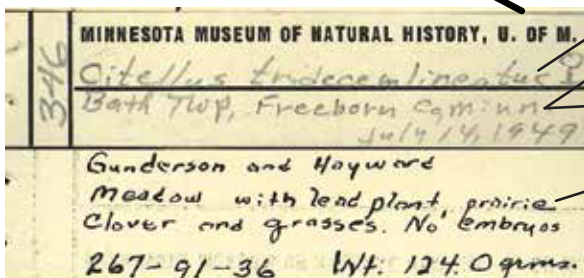 346
MINNESOTA MUSEUM OF NATURAL HISTORY, U. OF M.
Citellus tridecemlineatus ♀
Bath Twp, Freeborn Co, Minn
July 14, 1949
Gunderson and Hayward
Meadow with lead plant, prairie
Clover and grasses. No embryos
267-91-36 Wt. 124.0 grms.